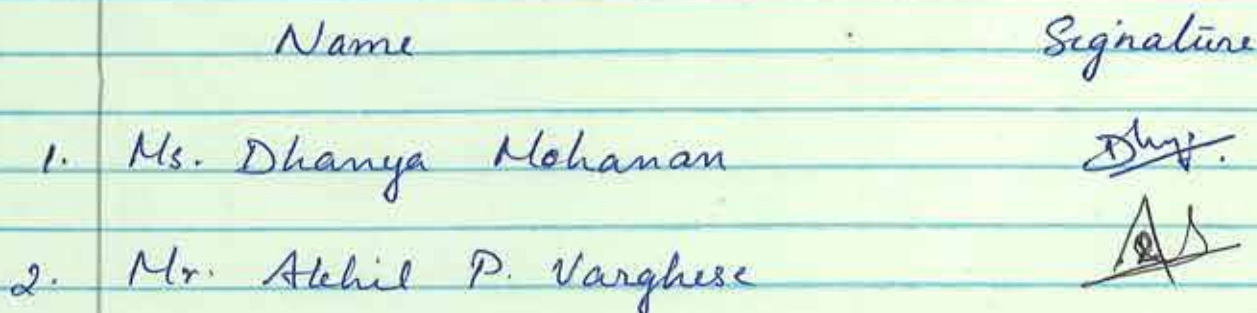 Name Signature
1. Ms. Dhanya Mohanan
2. Mr. Akhil P. Varghese